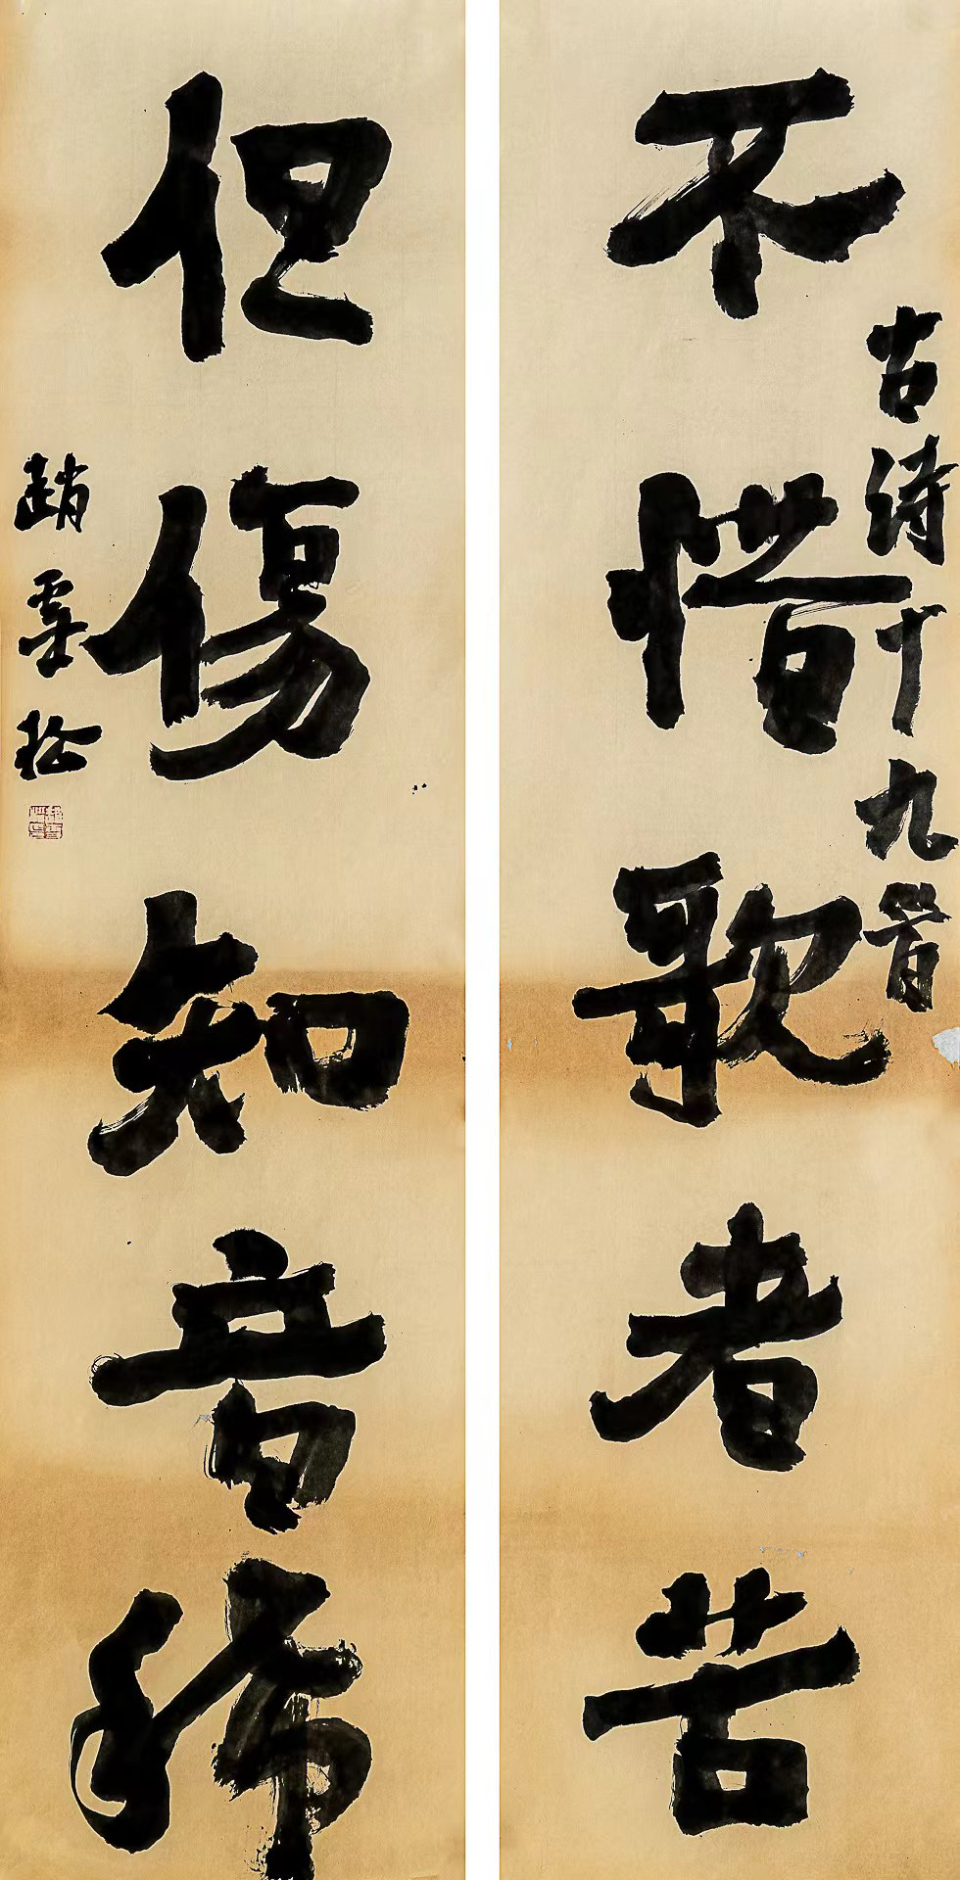 古诗十九首
不惜歌者苦
但傷知音稀
趙